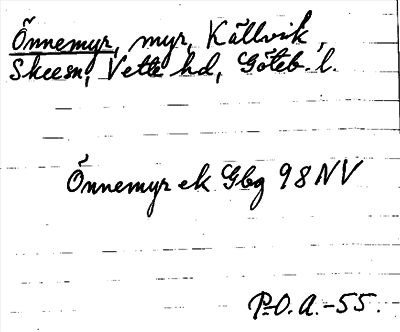 Önnemyr, myr, Källvik,
Skeesn, Vette hd, Göteb. l.
Önnemyr ek Gbg 98 NV
P.O.A.-55.